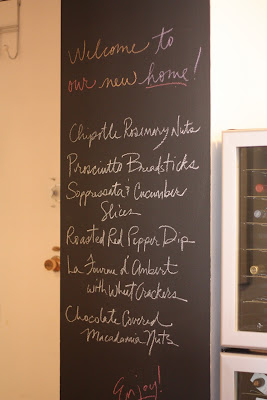 Welcome to
our new home!
Chipotle Rosemary Nuts
Prosciutto Breadsticks
Sopressata & Cucumber
Slices
Roasted Red Pepper Dip
La Fourme d'Ambert
with Wheat Crackers
Chocolate Covered
Macadamia Nuts
Enjoy!